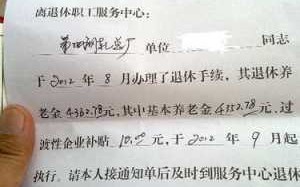 离退休职工服务中心：
第四制乳总厂 单位 同志
于2012年8月办理了退休手续，其退休养
老金4362.78元，其中基本养老金4352.78元，过
渡性企业补贴10.00元，于2012年9月起
执行。请本人接通知单后及时到服务中心退休